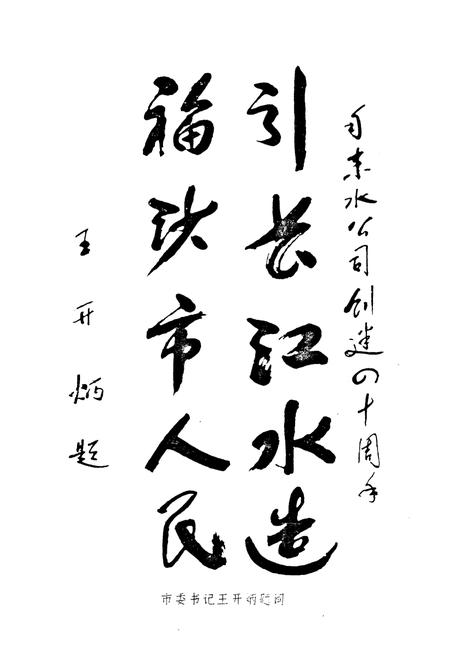 自来水公司创建四十周年
引长江水造
福沙市人民
王开炳题
市委书记王开炳题词